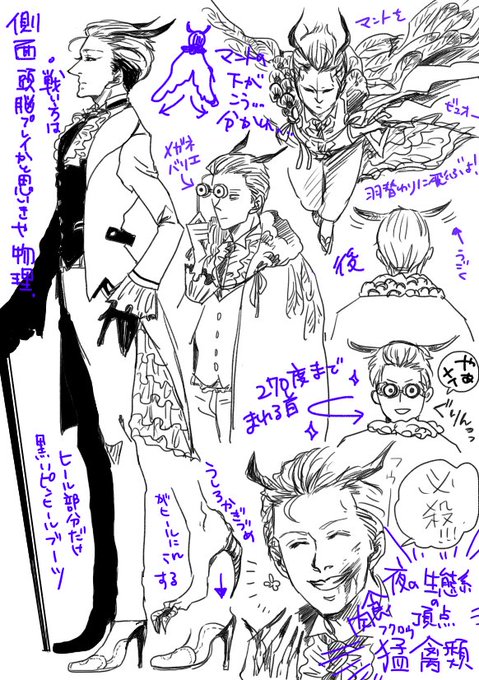 側面
戦い方は
頭脳プレイかと思いきや物理.
マントの
下が
こう…
メガネ
バリエ
マントを
羽替わりに飛ぶよ!
後
270度まで
まわる首
ぐりんっっ
必
殺!!!
夜の生態系
の
頂点
肉食
フクロウ
猛禽類
うしろかぎづめ
がヒールにこんし
する
ヒール部分だけ
黒いピンヒールブーツ